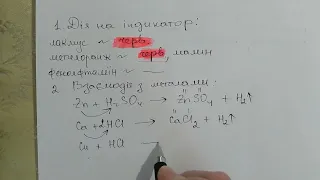 1. Дія на індикатор:
лакмус ~ черв.
метилоранж ~ черв., малин
фенолфталеїн ~ —
2 Взаємодія з металами:
Zn + H₂SO₄ → ZnSO₄ + H₂↑
Ca + 2HCl → CaCl₂ + H₂↑
Cu + HCl →